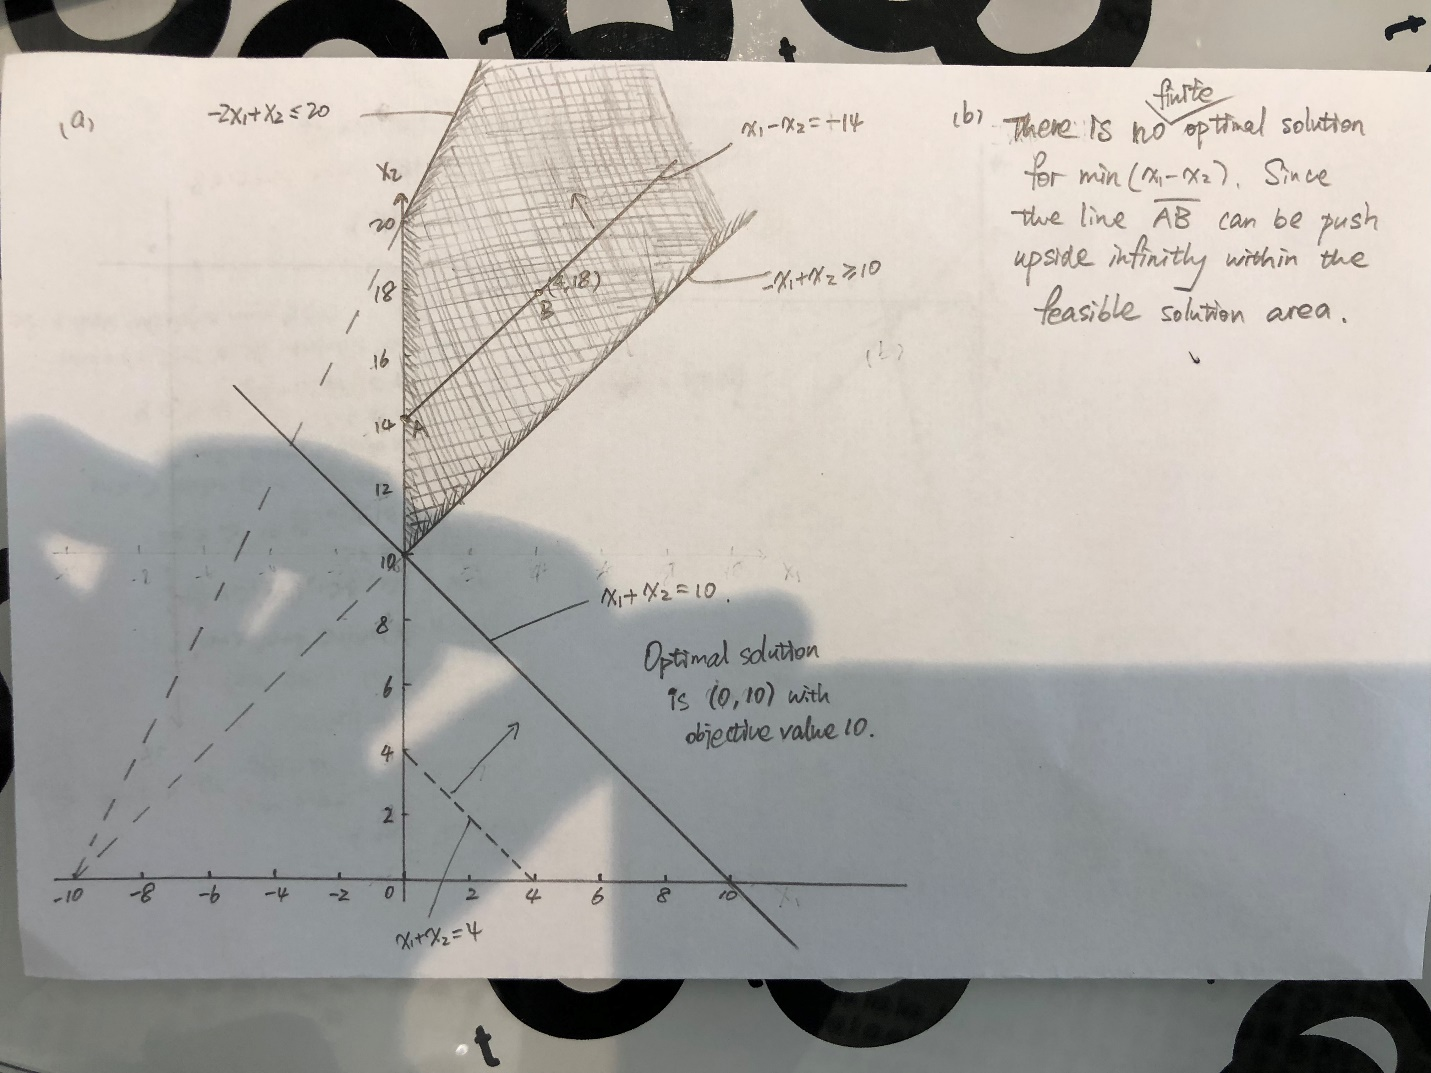 (a)
-2x₁+x₂≤20
x₁-x₂=-14
x₂
20
18
(4,18)
B
-x₁+x₂≥10
16
14
A
12
10
x₁+x₂=10.
8
Optimal solution
is (0,10) with
objective value 10.
6
4
2
-10 -8 -6 -4 -2 0 2 4 6 8 10 x₁
x₁+x₂=4
(b) There is no finite optimal solution
for min (x₁-x₂). Since
the line AB can be push
upside infinitly within the
feasible solution area.
t
t
t